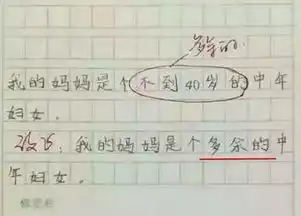 多余的
我的妈妈是个不到40岁的中年
妇女.
改正: 我的妈妈是个多余的中
年妇女.